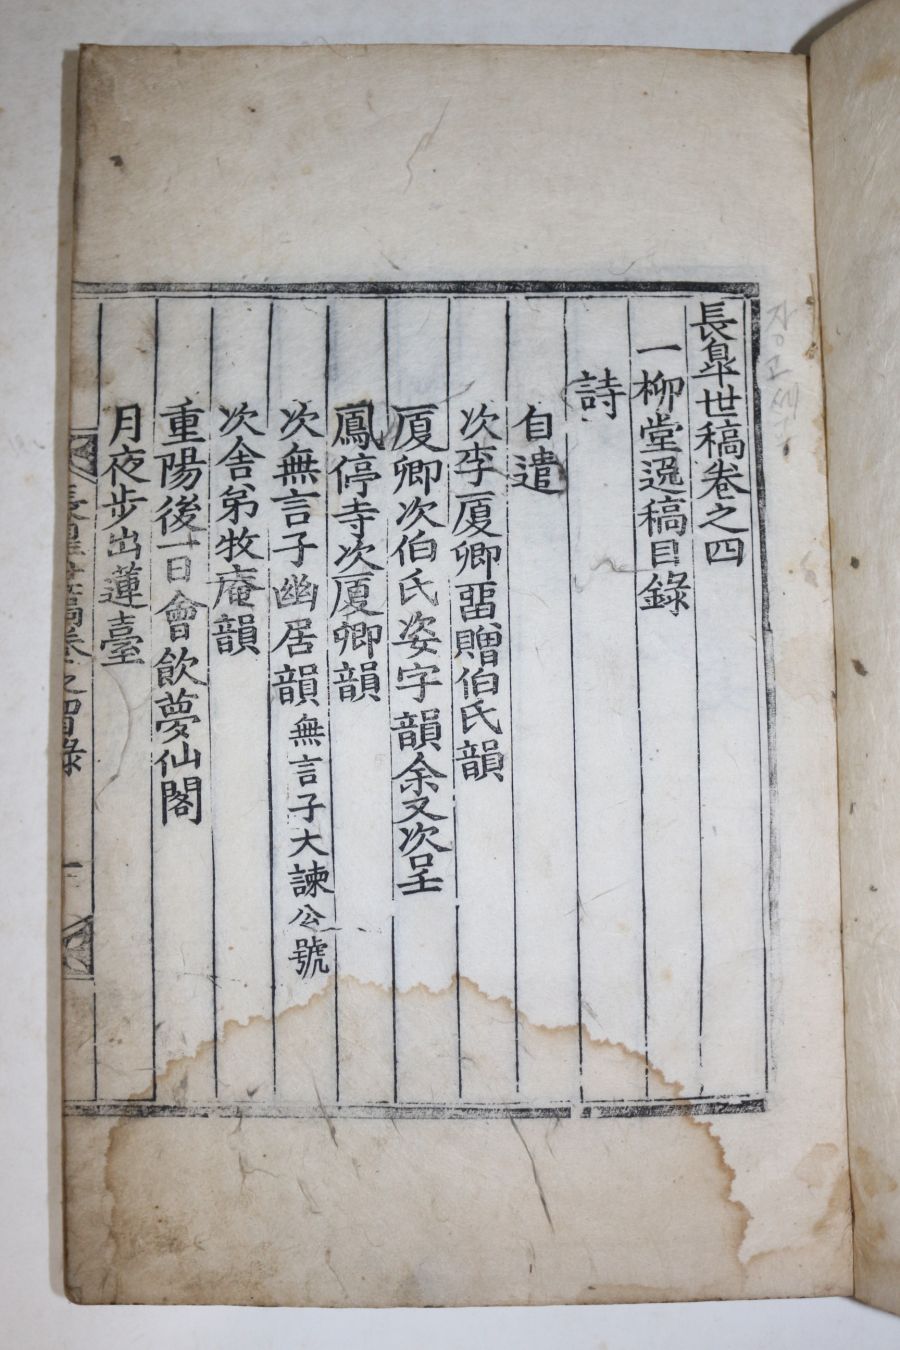 長皐世稿卷之四
一柳堂逸稿目錄
詩
自遣
次李厦卿畱贈伯氏韻
厦卿次伯氏姿字韻余又次呈
鳳停寺次厦卿韻
次無言子幽居韻無言子大諫公號
次舍弟牧庵韻
重陽後一日會飮夢仙閣
月夜步出蓮臺
長皐世稿卷之四目錄
一
장고세고